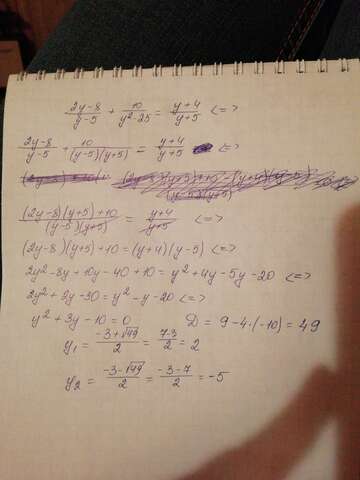 (2y-8)/(y-5) + 10/(y²-25) = (y+4)/(y+5) <=>
(2y-8)/(y-5) + 10/((y-5)(y+5)) = (y+4)/(y+5) <=>
((2y-8)(y+5)+10)/((y-5)(y+5)) = (y+4)/(y+5) <=>
(2y-8)(y+5)+10=(y+4)(y-5) <=>
2y²-8y+10y-40+10=y²+4y-5y-20 <=>
2y²+2y-30=y²-y-20 <=>
y²+3y-10=0 D=9-4·(-10)=49
y₁ = (-3+√49)/2 = (7-3)/2 = 2
y₂ = (-3-√49)/2 = (-3-7)/2 = -5